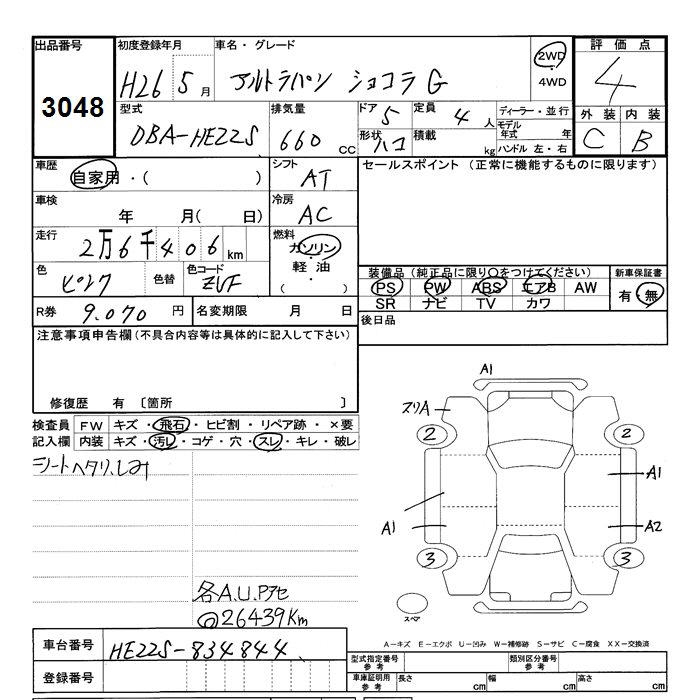 出品番号 初度登録年月 車名・グレード 2WD 評価点
3048 H26 5月 アルトラパン ショコラ G 4WD 4
型式 排気量 ドア 5 定員 4人 ディーラー・並行 外装 内装
DBA-HE22S 660 CC 形状 ハコ 積載 kg モデル年式 年 C B
ハンドル 左・右
車歴 自家用・( ) シフト AT セールスポイント (正常に機能するものに限ります)
車検 年 月( 日) 冷房 AC
走行 2万6千406km 燃料 ガソリン・軽油 ( ・ )
色 ピンク 色替 色コード ZVF 装備品(純正品に限り○をつけてください) 新車保証書
PS PW ABS エアB AW 有・無
R券 9.070円 名変期限 月 日 SR ナビ TV カワ
注意事項申告欄(不具合内容等は具体的に記入して下さい) 後日品
修復歴 有 〔箇所 〕
検査員 FW キズ・飛石・ヒビ割・リペア跡・×要
記入欄 内装 キズ・汚レ・コゲ・穴・スレ・キレ・破レ
シートヘタリ、しみ
A1
スリA
2 2
A1
A1 A2
3 3
スペア
各A.U.Pアセ
@26439Km
A-キズ E-エクボ U-凹み W-補修跡 S-サビ C-腐食 XX-交換済
車台番号 HE22S-834844
型式指定番号 参考 類別区分番号 参考
登録番号 車庫証明用 参考 長さ cm 幅 cm 高さ cm
A1